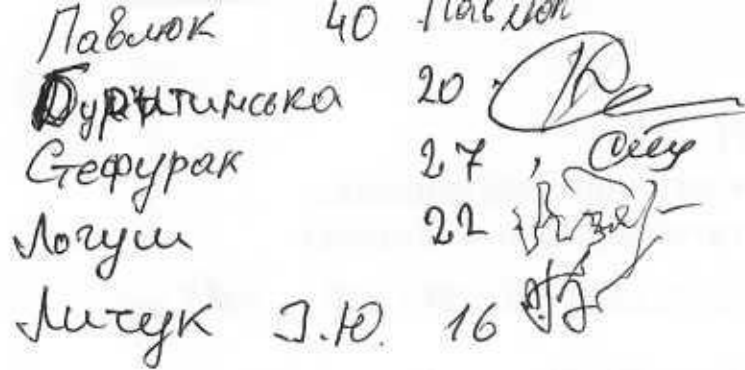 Павлюк 40 Павлюк
Бурштинська 20
Стефурак 27, Стеф
Логуш 22
Личук З.Ю. 16